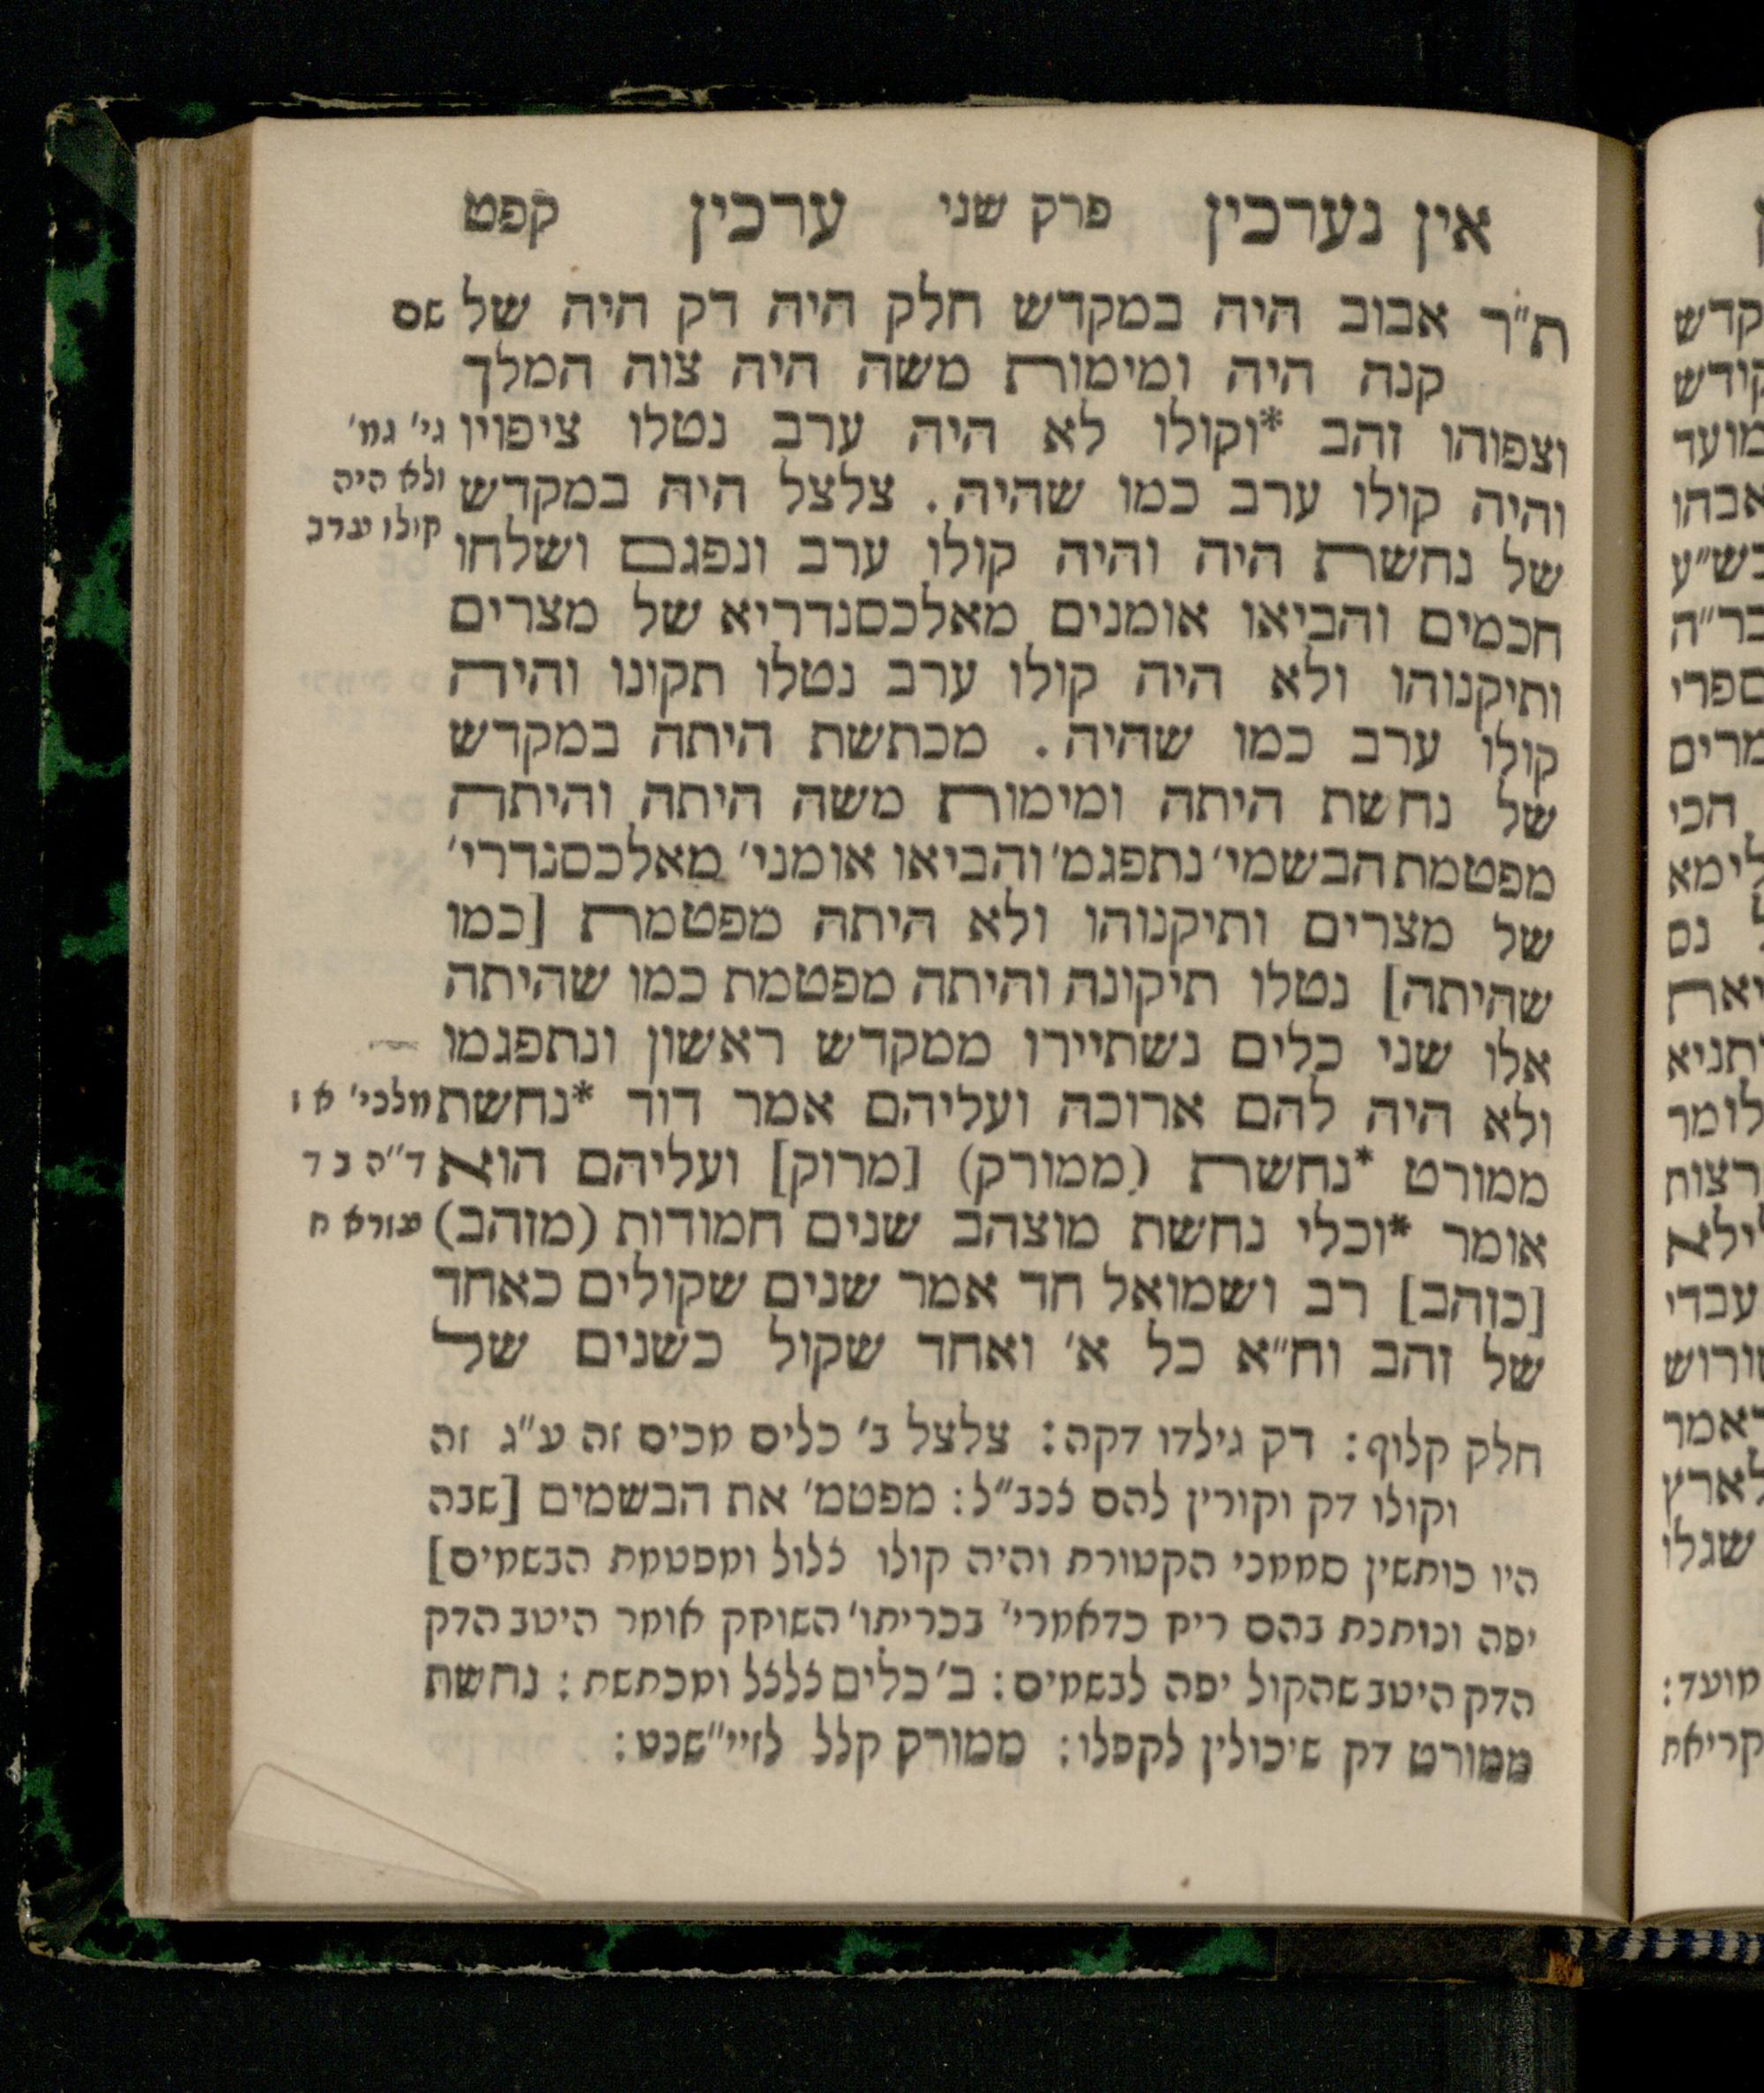 אין נערכין פרק שני ערכין קפט
ת"ר אבוב היה במקדש חלק היה דק היה של
שם
קנה היה ומימות משה היה צוה המלך
וצפוהו זהב *וקולו לא היה ערב נטלו ציפויו
גי' גמ'
והיה קולו ערב כמו שהיה. צלצל היה במקדש
ולא היה
של נחשת היה והיה קולו ערב ונפגם ושלחו
קולו ערב
חכמים והביאו אומנים מאלכסנדריא של מצרים
ותיקנוהו ולא היה קולו ערב נטלו תקונו והיה
קולו ערב כמו שהיה. מכתשת היתה במקדש
של נחשת היתה ומימות משה היתה והיתה
מפטמת הבשמי' נתפגמ' והביאו אומני' מאלכסנדרי'
של מצרים ותיקנוהו ולא היתה מפטמת [כמו
שהיתה] נטלו תיקונה והיתה מפטמת כמו שהיתה
אלו שני כלים נשתיירו ממקדש ראשון ונתפגמו
ולא היה להם ארוכה ועליהם אמר דוד *נחשת
מלכי' א ז
ממורט *נחשת (ממורק) [מרוק] ועליהם הוא
ד"ה ב ד
אומר *וכלי נחשת מוצהב שנים חמודות (מזהב)
עזרא ח
[כזהב] רב ושמואל חד אמר שנים שקולים כאחד
של זהב וח"א כל א' ואחד שקול כשנים של
חלק קלוף: דק גילדו דקה: צלצל ב' כלים מכים זה ע"ג זה
וקולו דק וקורין להם לכב"ל: מפטמ' את הבשמים [שבה
היו כותשין סממני הקטורת והיה קולו צלול ומפטמת הבשמים]
יפה ונותנת בהם ריח כדאמרי' בכריתו' השוחק אומר היטב הדק
הדק היטב שהקול יפה לבשמים: ב' כלים צלצל ומכתשת: נחשת
ממורט דק שיכולין לקפלו: ממורק קלל